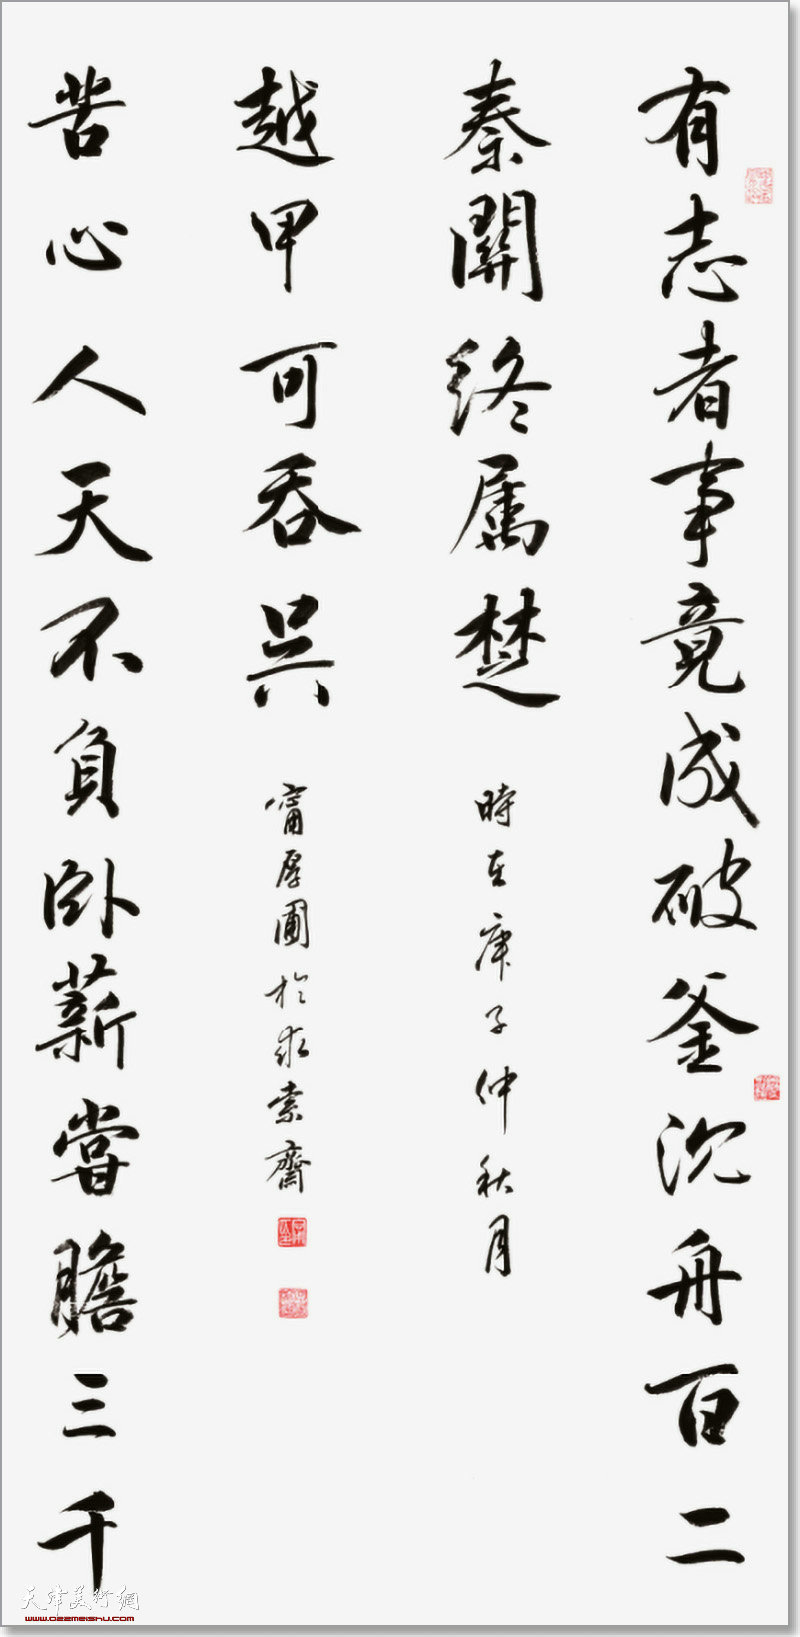 有志者事竟成破釜沈舟百二
秦關終屬楚
時在庚子仲秋月
苦心人天不負卧薪嘗膽三千
越甲可吞吳
甯厚圃於求索齋
天津美術網
www.022meishu.com